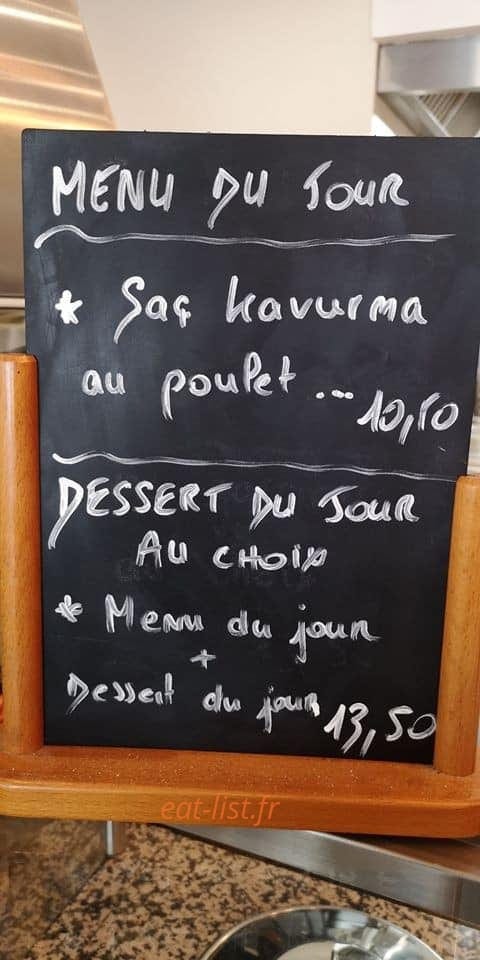 MENU DU JOUR
* Saç kavurma
au poulet ... 10,50
DESSERT DU JOUR
AU CHOIX
* Menu du jour
+
Dessert du jour 13,50
eat-list.fr